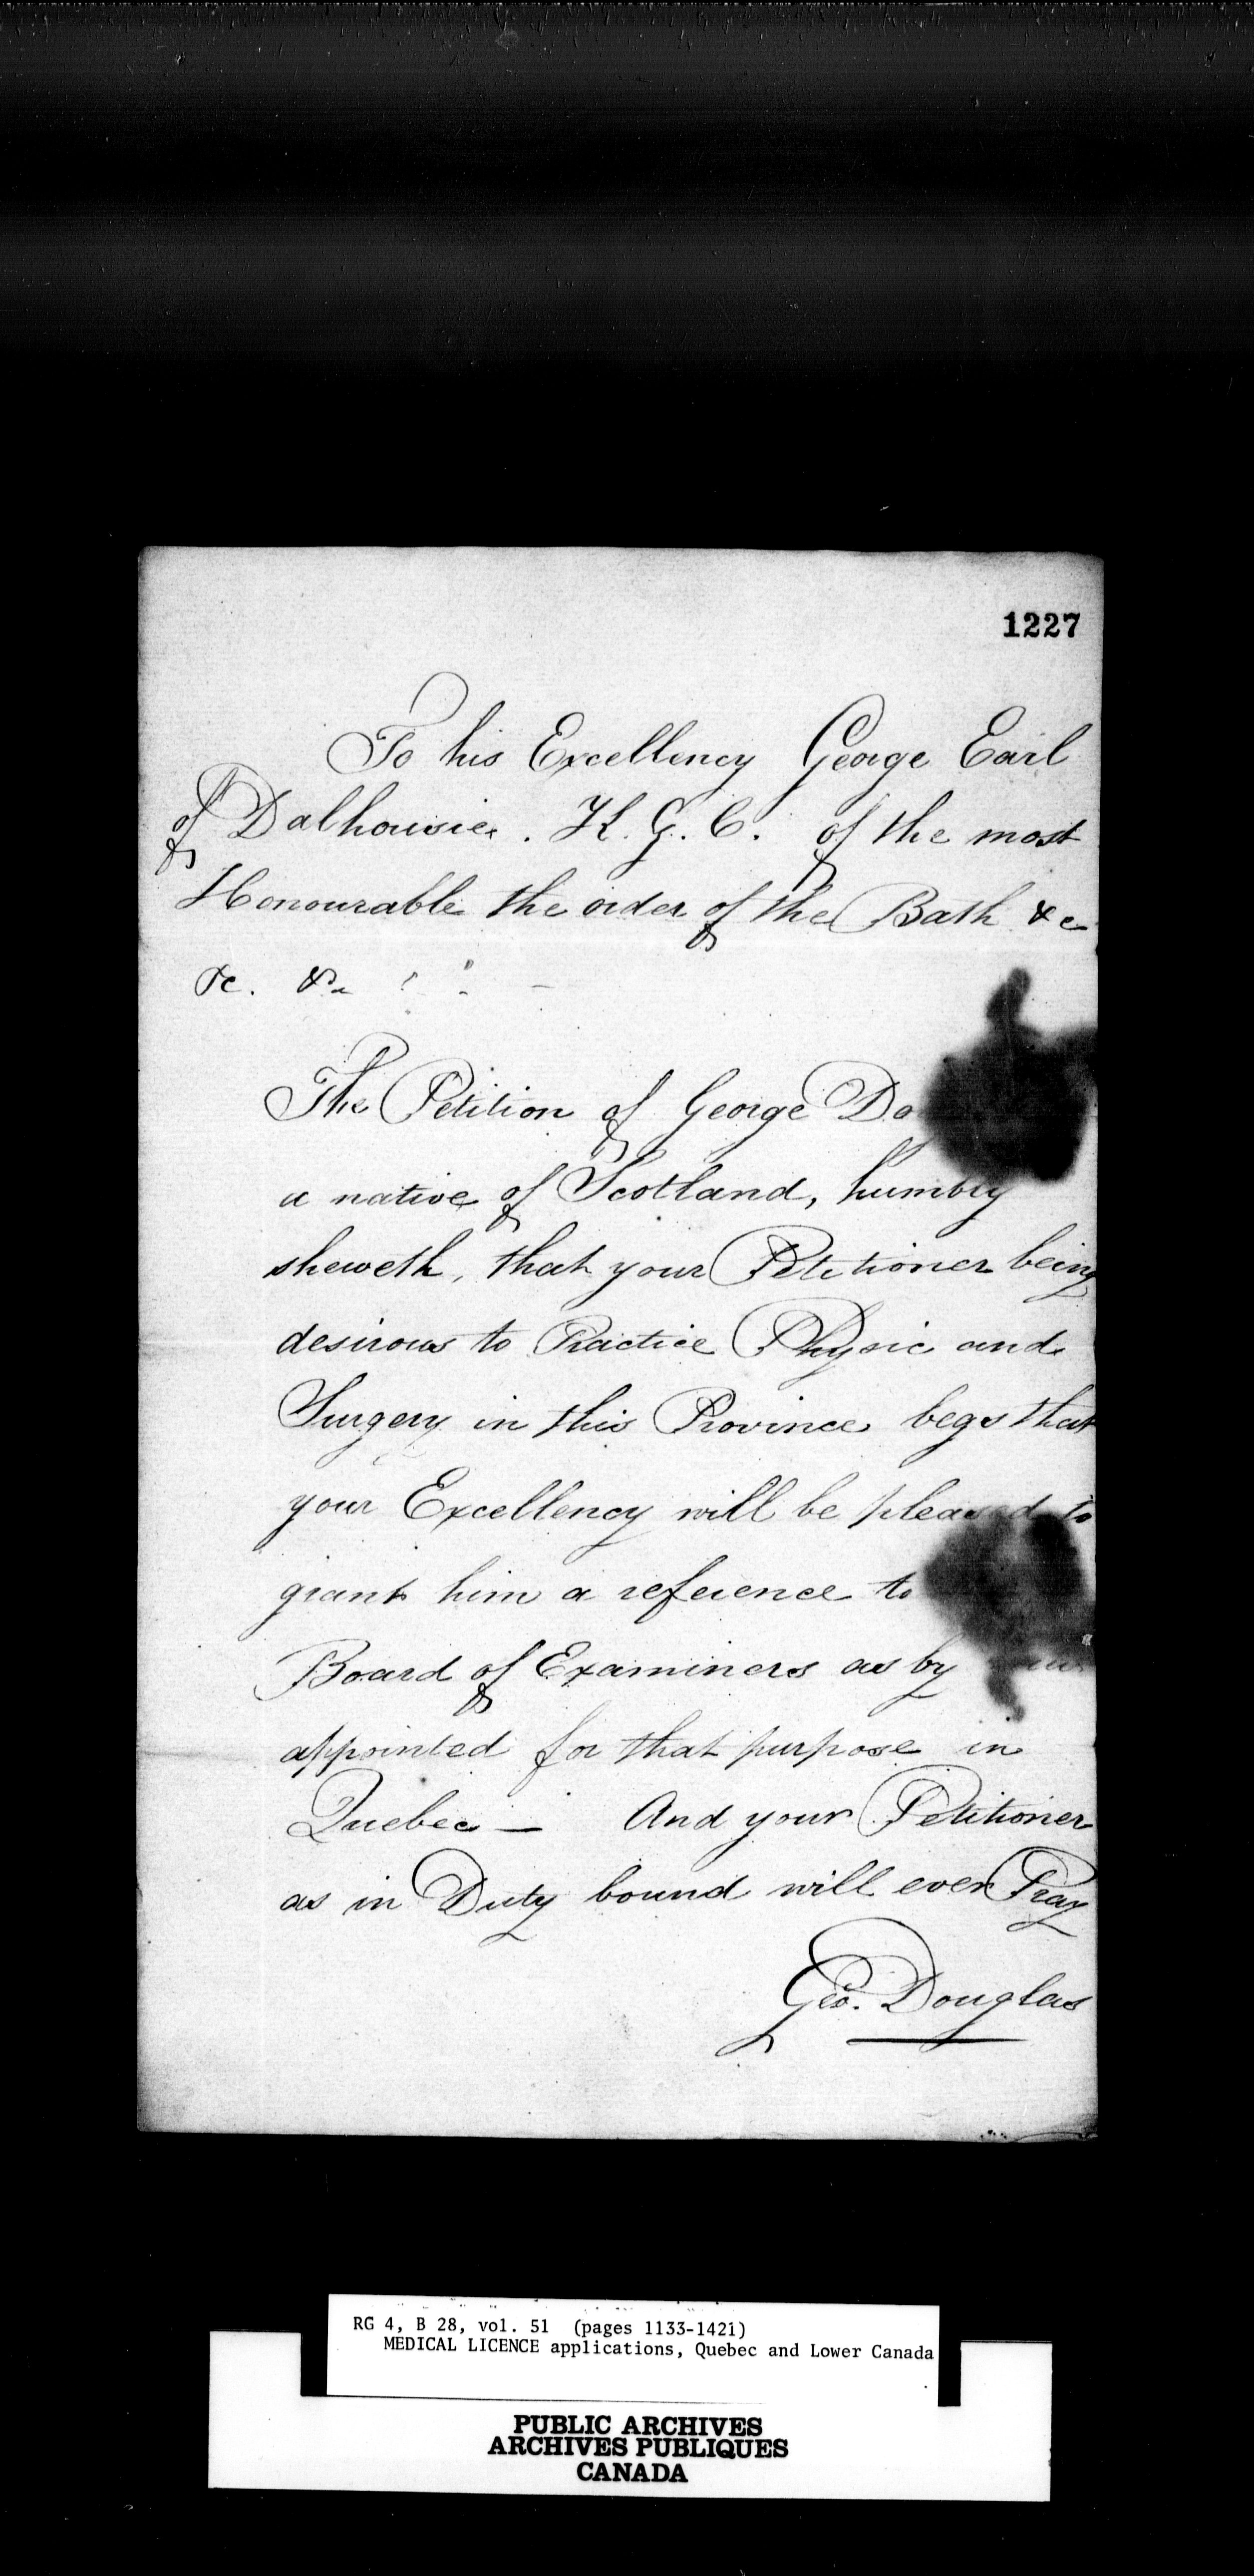 1227
To his Excellency George Earl
of Dalhousie. K. G. C. of the most
Honourable the order of the Bath &c
&c. &c
The Petition of George Do
a native of Scotland, humbly
sheweth, that your Petitioner being
desirous to Practice Physic and
Surgery in this Province begs that
your Excellency will be pleased to
grant him a reference to
Board of Examiners as by
appointed for that purpose in
Quebec — And your Petitioner
as in Duty bound will ever Pray
Geo. Douglas
RG 4, B 28, vol. 51 (pages 1133-1421)
MEDICAL LICENCE applications, Quebec and Lower Canada
PUBLIC ARCHIVES
ARCHIVES PUBLIQUES
CANADA